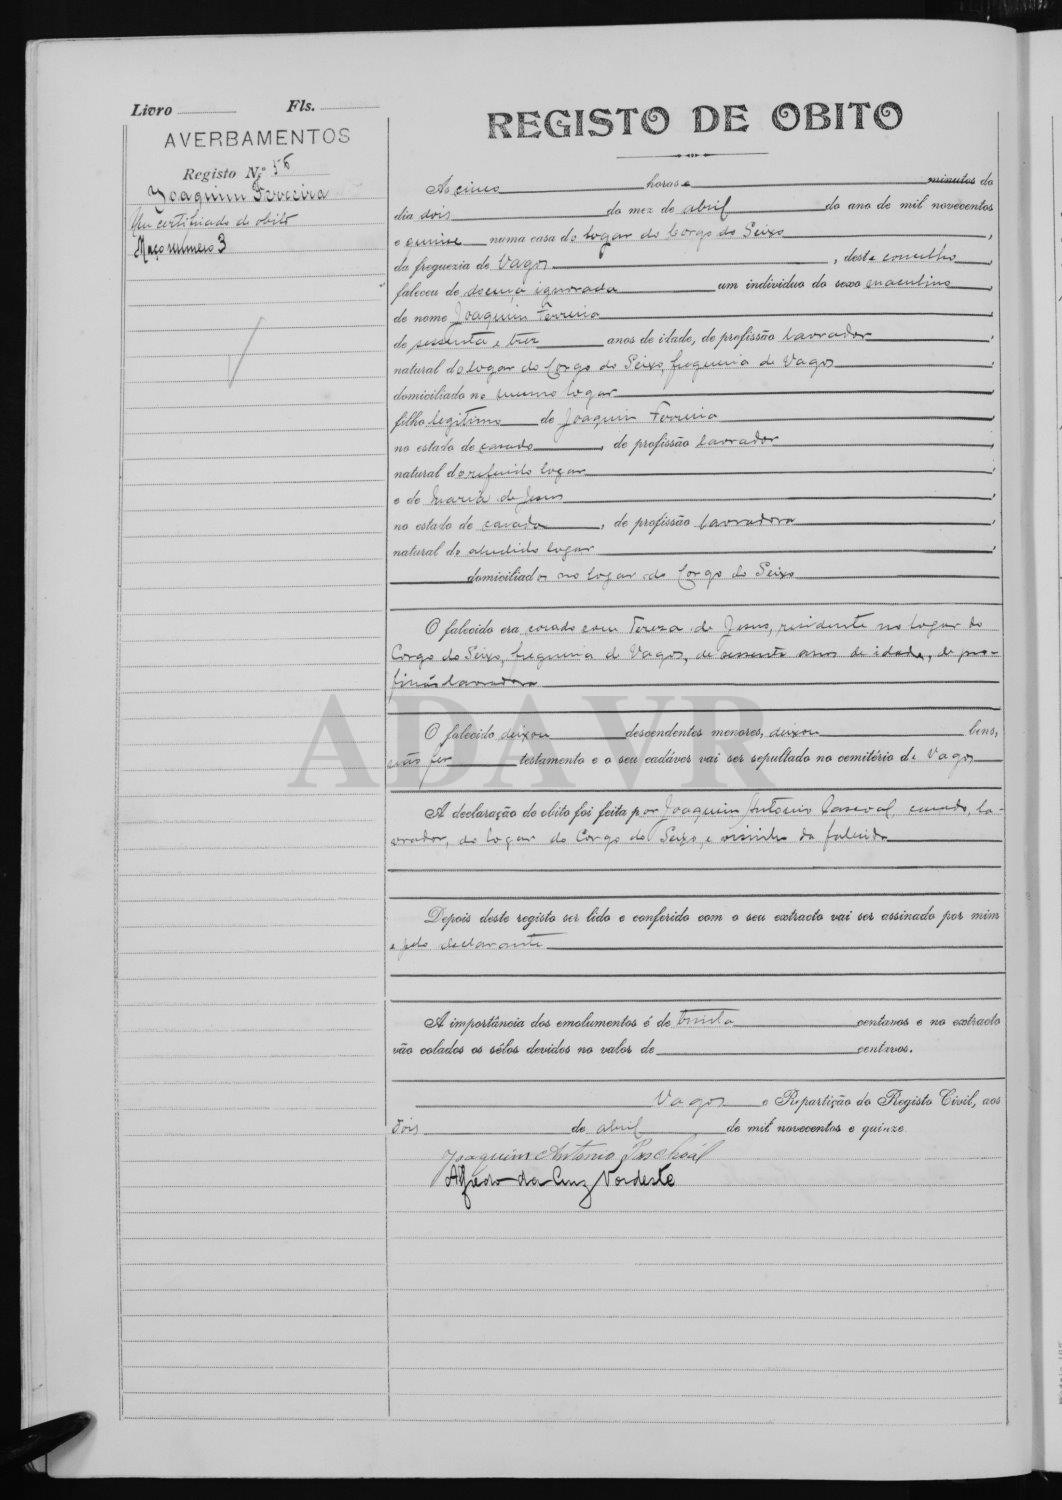 Livro Fls.
AVERBAMENTOS
Registo N.º 56
Joaquim Ferreira
Um certificado de obito
Maço numero 3
REGISTO DE OBITO
Ás cinco horas e minutos do
dia dois do mez de abril do ano de mil novecentos
e quinze numa casa do logar do Corgo do Seixo,
da freguezia de Vagos, deste concelho,
faleceu de doença ignorada um individuo do sexo masculino,
de nome Joaquim Ferreira,
de sessenta e trez anos de idade, de profissão lavrador,
natural do logar do Corgo do Seixo, freguesia de Vagos,
domiciliado no mesmo logar,
filho legitimo de Joaquim Ferreira,
no estado de casado, de profissão lavrador,
natural do referido logar,
e de Maria de Jesus,
no estado de casada, de profissão lavradora,
natural do aludido logar,
domiciliados no logar do Corgo do Seixo
O falecido era casado com Tereza de Jesus, residente no logar do
Corgo do Seixo, freguesia de Vagos, de sessenta anos de idade, de pro-
fissão lavradora
O falecido deixou descendentes menores, deixou bens,
não fez testamento e o seu cadáver vai ser sepultado no cemitério de Vagos
A declaração do obito foi feita por Joaquim Antonio Pascoal, casado, la-
vrador, do logar do Corgo do Seixo, e visinho do falecido
Depois deste registo ser lido e conferido com o seu extracto vai ser assinado por mim
e pelo declarante
A importância dos emolumentos é de trinta centavos e no extracto
vão colados os sêlos devidos no valor de centavos.
Vagos e Repartição do Registo Civil, aos
dois de abril de mil novecentos e quinze.
Joaquim Antonio Paschoal
Alfredo da Cruz Nordeste
ADAVR